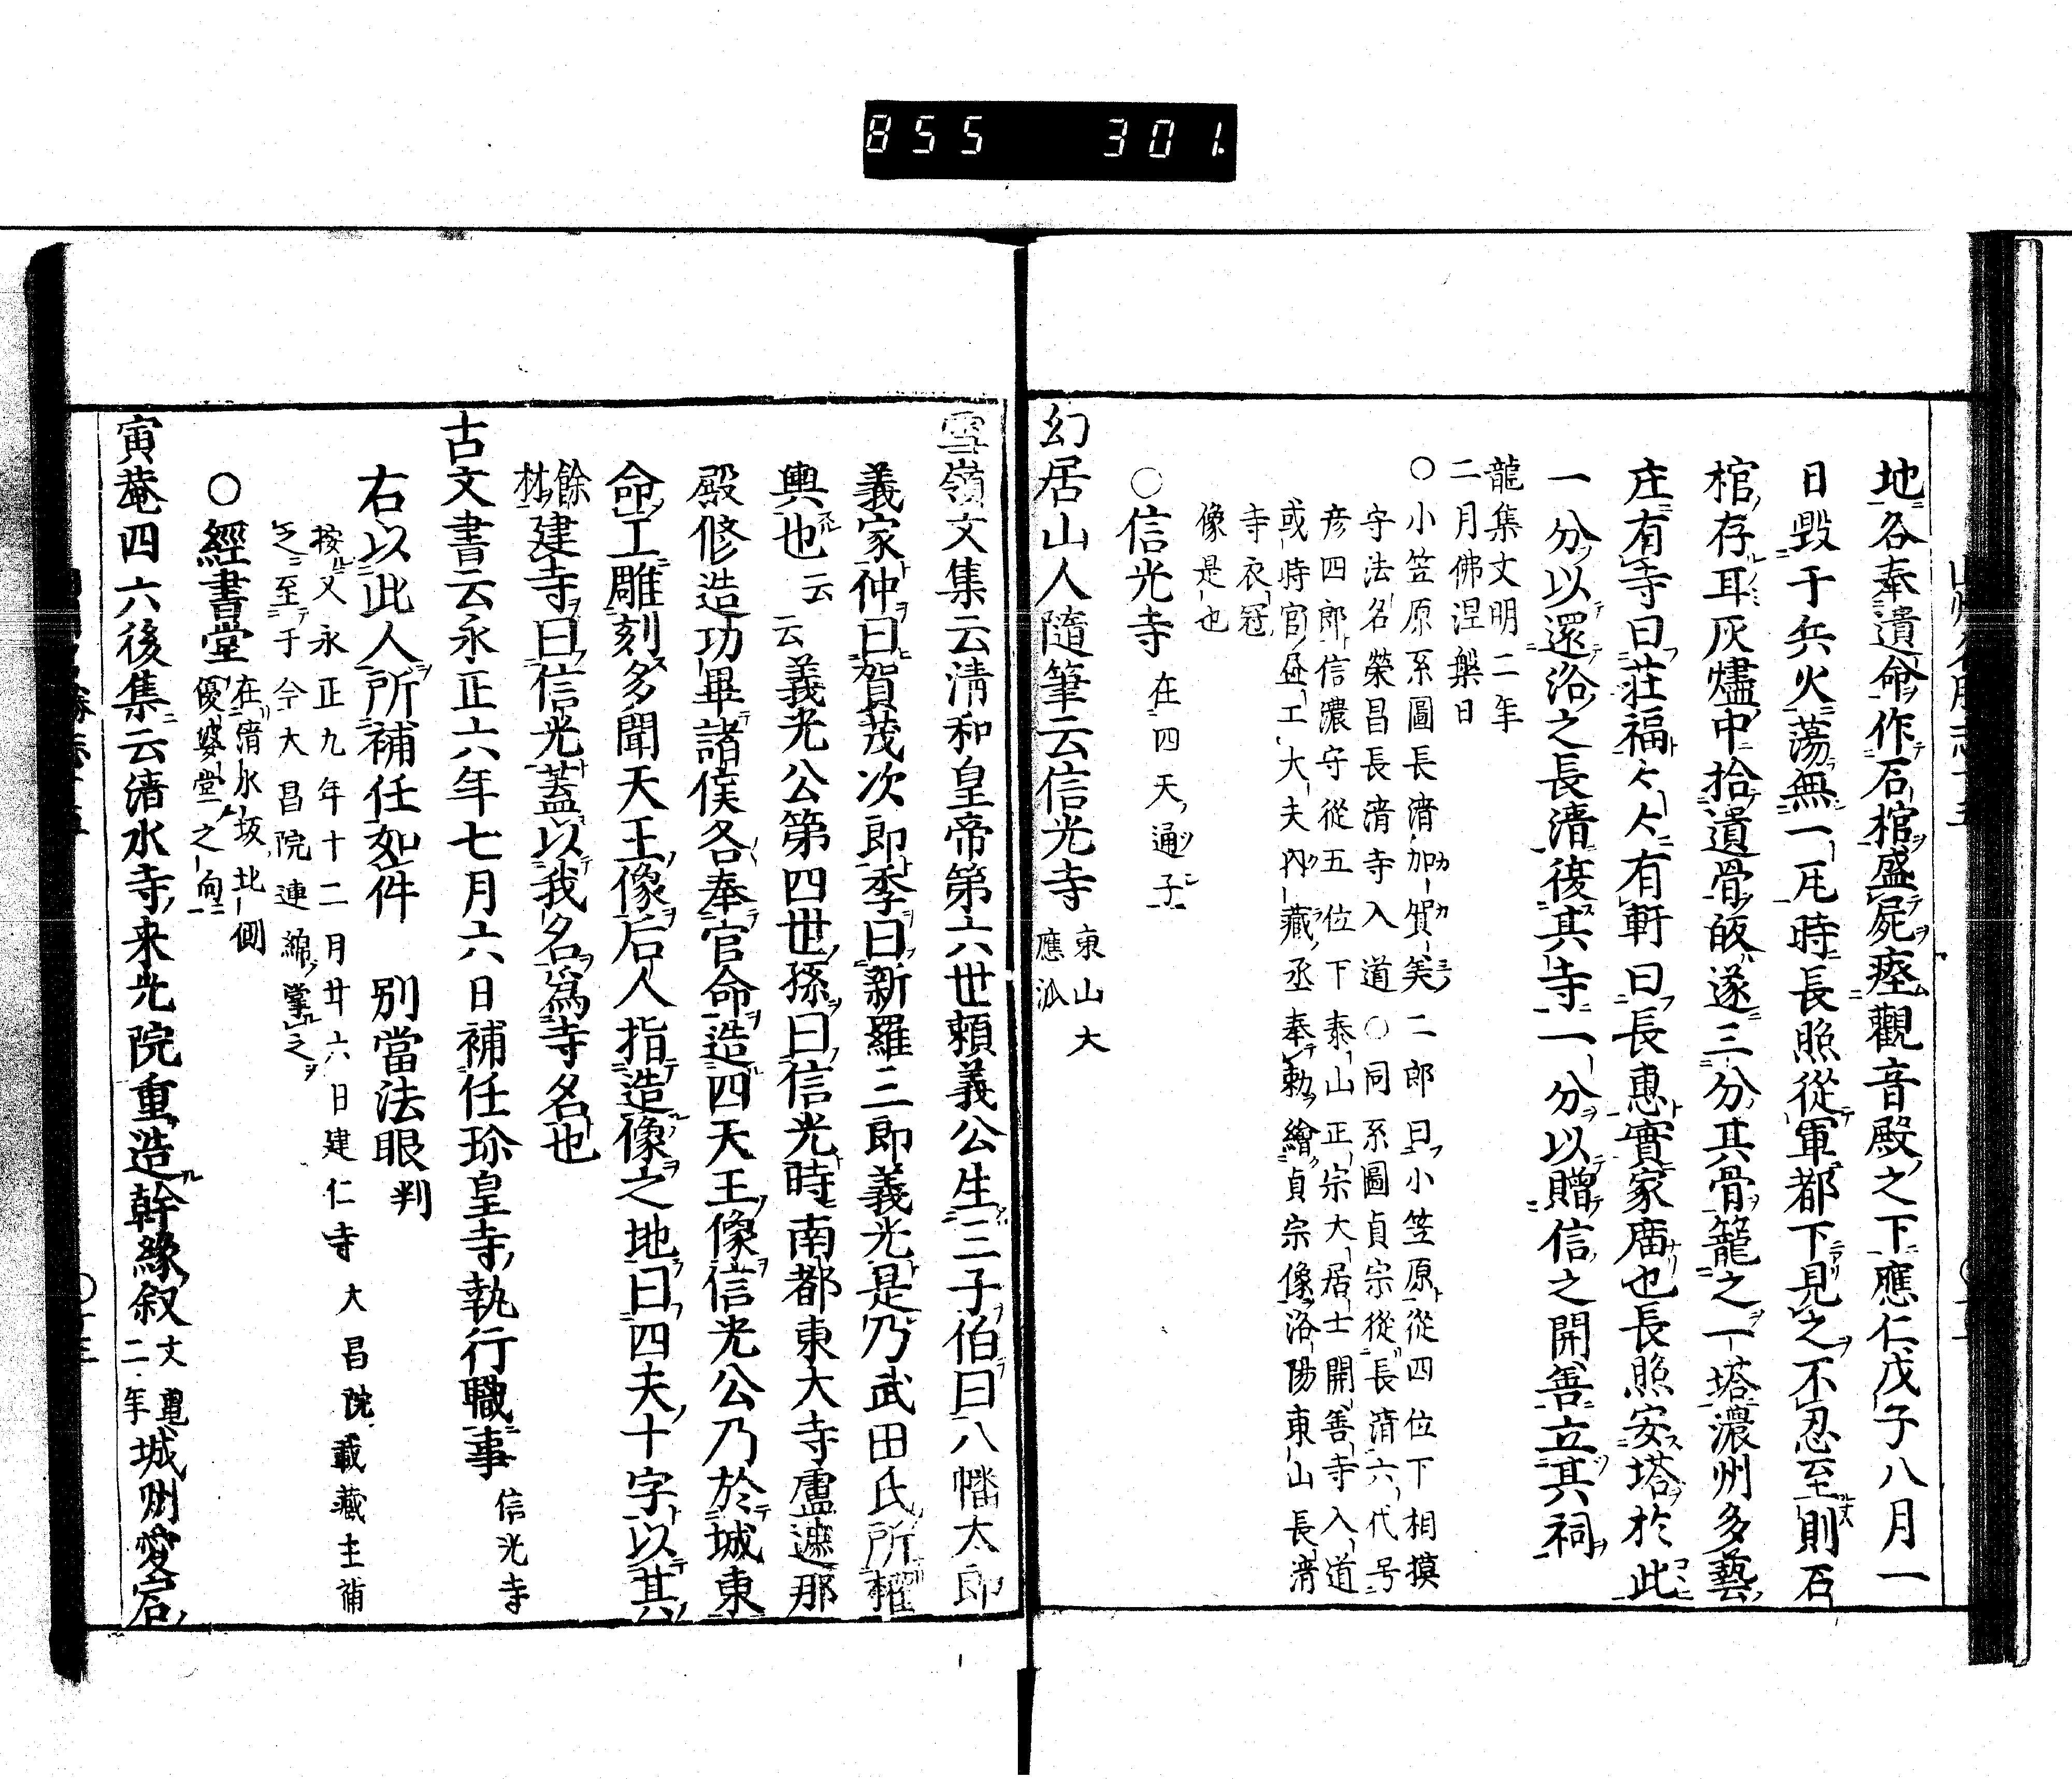 855 301.
地各奉遺命作石棺盛屍瘞觀音殿之下應仁戊子八月一
日毀于兵火蕩無一瓦時長照從軍都下見之不忍至則石
棺存耳灰燼中拾遺骨皈遂三分其骨籠之一塔濃州多藝
庄有寺曰莊福々々有軒曰長惠實家庿也長照安塔於此
一分以還洛之長清後其寺一分以贈信之開善立其祠
龍集文明二年
二月佛涅槃日
○小笠原系圖長清加賀美二郎曰小笠原從四位下相摸
守法名榮昌長清寺入道○同系圖貞宗從長清六代号
彦四郎信濃守從五位下泰山正宗大居士開善寺入道
或時官畫工大夫內藏丞奉勅繪貞宗像洛陽東山長清
寺衣冠
像是也
○信光寺 在四天通子
幻居山人隨筆云信光寺 東山大
應派
雪嶺文集云清和皇帝第六世頼義公生三子伯曰八幡太郎
義家仲曰賀茂次郎季曰新羅三郎義光是乃武田氏所權
輿也云云義光公第四世孫曰信光時南都東大寺盧遮那
殿修造功畢諸侯各奉官命造四天王像信光公乃於城東
命工雕刻多聞天王像后人指造像之地曰四夫十字以其
餘材建寺曰信光蓋以我名爲寺名也
古文書云永正六年七月六日補任珎皇寺執行職事 信光寺
右以此人所補任如件 別當法眼判
按又永正九年十二月廿六日建仁寺大昌院載藏主補
之至于今大昌院連綿掌之
○經書堂 在清水坂北側
優婆堂之向
寅菴四六後集云清水寺来光院重造幹緣叙 文龜
二年 城州愛宕